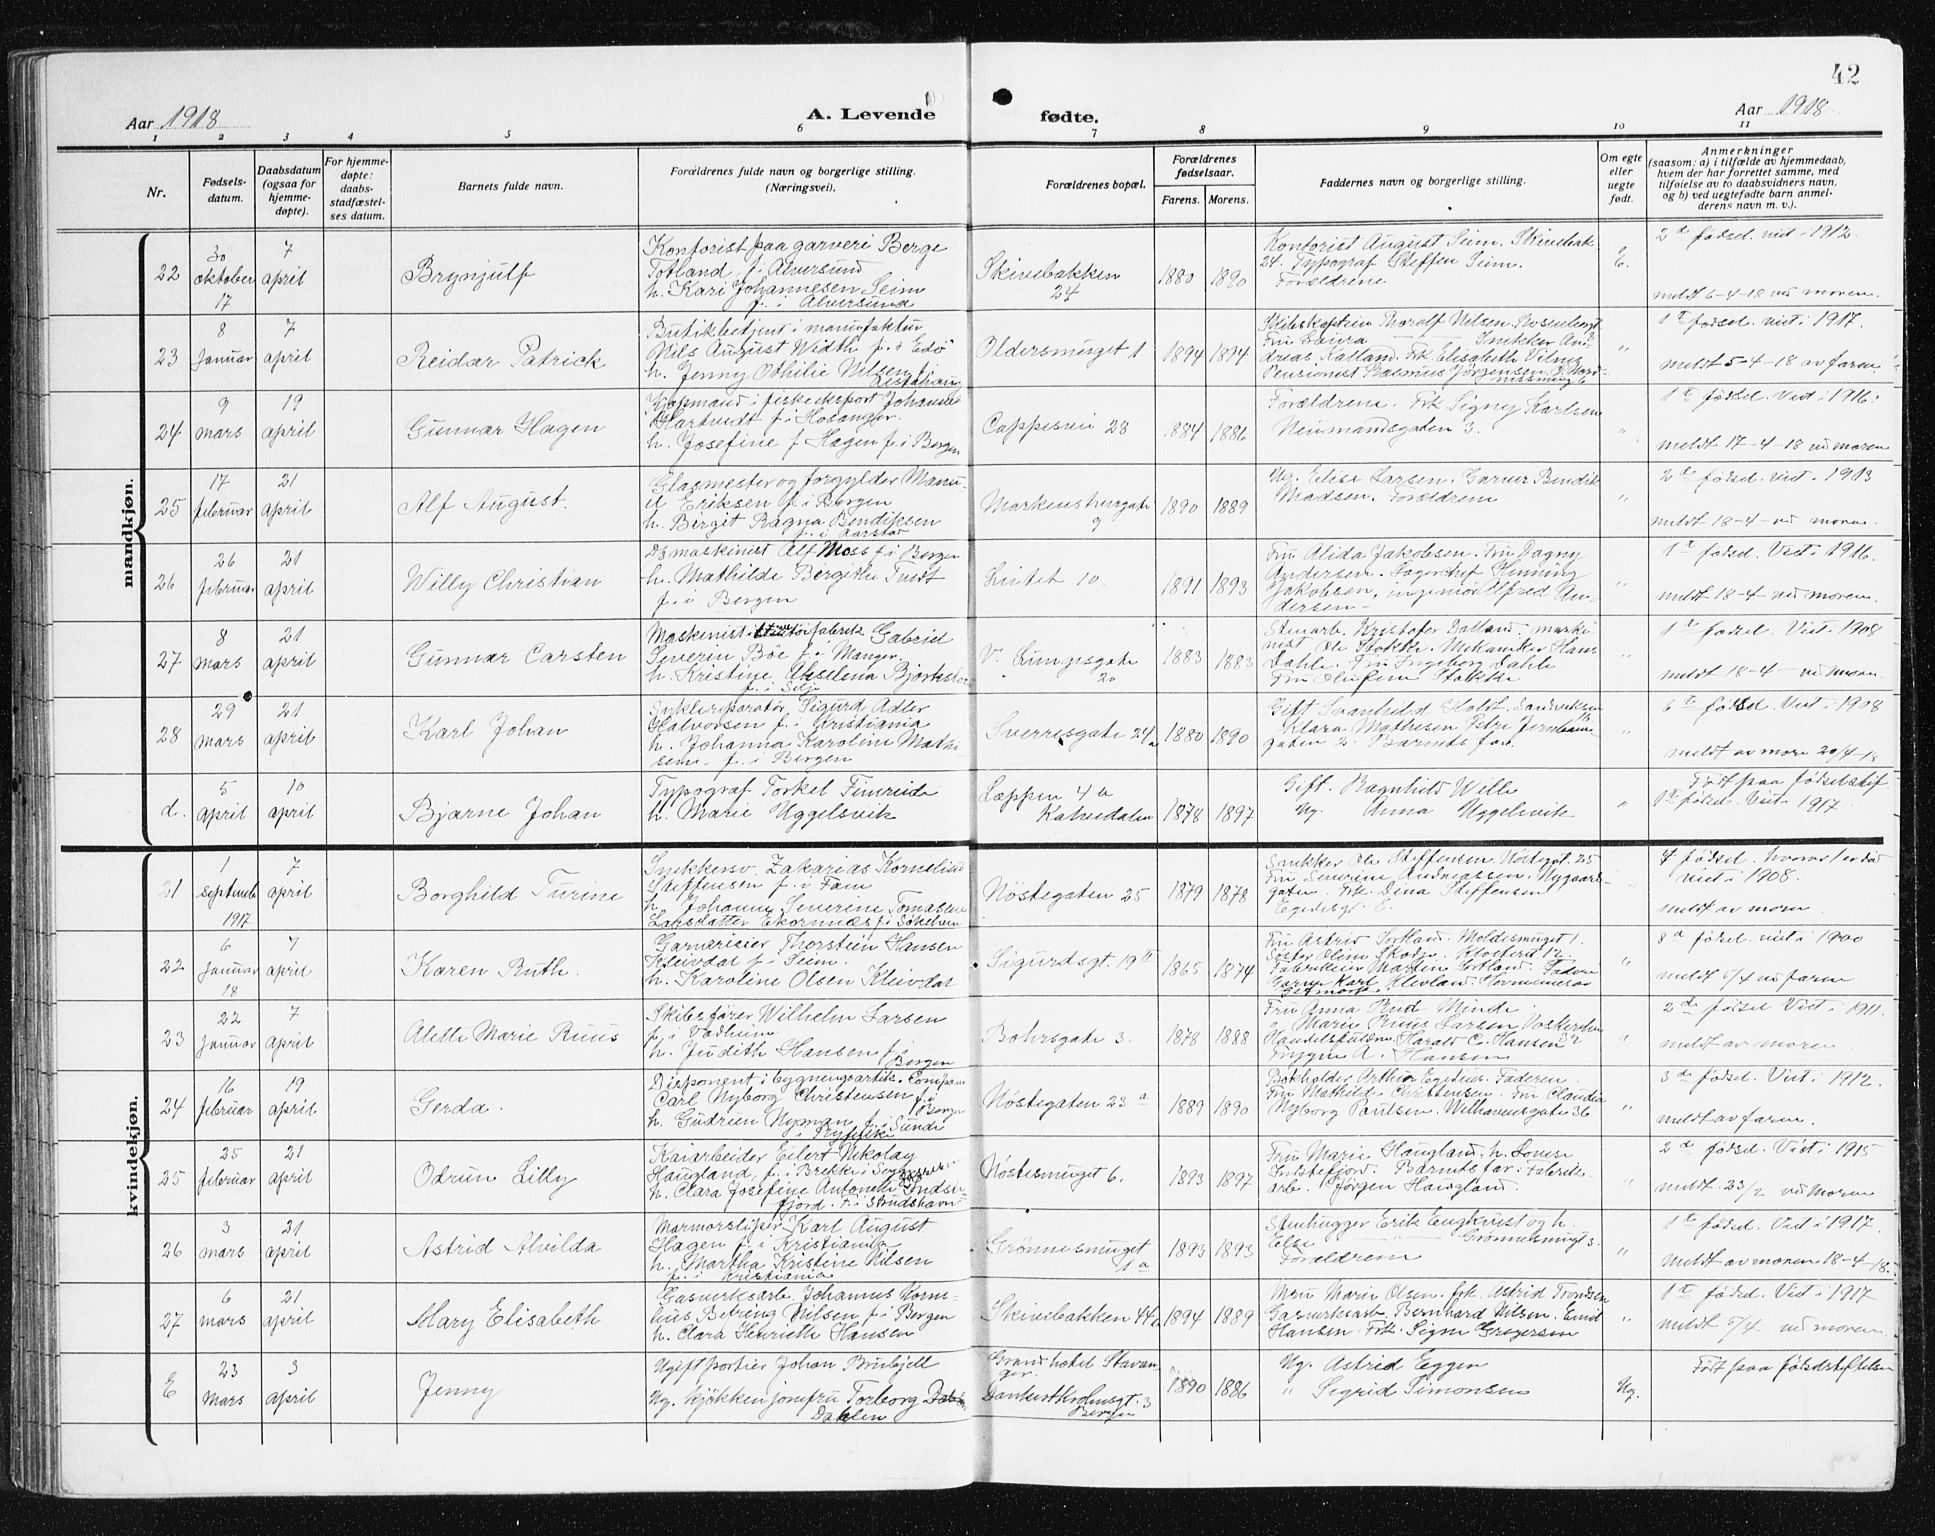 42
Aar 1918
A. Levende
fødte.
Aar 1918
1 2 3 4 5 6 7 8 9 10 11
Nr.
Fødsels-
datum.
Daabsdatum
(ogsaa for
hjemme-
døpte).
For hjemme-
døpte:
daabs-
stadfæstel-
ses datum.
Barnets fulde navn.
Forældrenes fulde navn og borgerlige stilling.
(Næringsvei).
Forældrenes bopæl.
Forældrenes
fødselsaar.
Farens. Morens.
Faddernes navn og borgerlige stilling.
Om egte
eller
uegte
født.
Anmerkninger
(saasom: a) i tilfælde av hjemmedaab,
hvem der har forrettet samme, med
tilføielse av to daabsvidners navn,
og b) ved uegtefødte barn anmel-
derens navn m. v.).
mandkjøn.
22
30
oktober
17
7
april
Brynjulf
Kontorist paa garveri Berge
Totland f. i Alversund
h. Kari Johannesen Seim
f. i Alversund
Skivebakken
24
1880 1890
Kontorist August Seim. Skivebak.
24. Typograf Steffen Seim.
Forældrene
E.
2 d fødsel. viet 1912.
meldt 6-4-18 ved moren.
23
8
januar
7
april
Reidar Patrick
Butikbetjent i manufaktur
Nils August Width f. i Edø
h. Jenny Othilie Nilsen f. i
Oldersmuget 1
1894 1894
Skibskaptein Thorolf Nilsen
Fru Laura Snikker An-
dreas Kalland. Frk. Elisabeth Vilnes
Pensionist Rasmus Jørgensen
"
1 ste fødsel. viet i 1917.
meldt 5-4-18 av faren
24
9
mars
19
april
Gunnar Hagen
Kjøpmand i fiskeeksport Johannes
Hartvedt f. i Hosanger.
h. Josefine f. Hagen f. i Bergen
Cappesvei 28
1884 1886
Forældrene. Frk Signy Karlsen
Neumandsgaten 3.
"
1 ste fødsel. Viet i 1916.
meldt 17-4-18 ved moren
25
17
februar
21
april
Alf August.
Glasmester og forgylder Manu-
el Eriksen f. i Bergen
h. Birgit Ragna Bendiksen
f. i Aarstad
9
1890 1889
Ug. Elise Larsen. Garver Bendik
Madsen. Forældrene
"
2 d fødsel. viet i 1913
meldt 18-4- ved moren.
26
26
februar
21
april
Willy Christian
maskinist Alf Moss f. i Bergen
h. Mathilde Bergithe Tvedt
f. i Bergen
10.
1891 1893
Fru Alida Jakobsen. Fru Dagny
Andersen. Lagerchef Henning
Jakobsen, ingeniør Alfred An-
dersen-
"
1 ste fødsel. Viet i 1916.
meldt 18-4- ved moren.
27
8
mars
21
april
Gunnar Carsten
Maskinist fabrik Gabriel
Severin Bøe f. i Manger.
h. Kristine Akselena
f. i Selje
V. Lungesgate
20
1883 1883
Stenarb. Kristofer Dalland. maski-
nist Ole Stokke. Mekaniker Hans
Dahle. Fru Ingeborg Dahle
Fru Stokke
"
1 ste fødsel. Viet i 1908
meldt 18-4 ved moren
28
29
mars
21
april
Karl Johan
Syklereparatør Sigurd Adler
Halvorsen f. i Kristiania
h. Johanna Karoline Math-
sen. f. i Bergen
Sverresgate 24 a
1880 1890
Gift Svanhild Holst. Sandviksv
Klara Mathisen Petre Jernbane-
gaten 2. Barnets far.
"
6 te fødsel. Viet i 1908
meldt av more 20/4-18
d.
5
april
10
april
Bjarne Johan
Typograf Torkel Fimreide
h. Marie Uggelsvik
Læppen 4 a
Kalvedalen
1878 1897
Gift. Ragnhild Wille
Ug. Anna Uggelsvik
"
Født paa fødselsstif.
1 ste fødsel. Viet i 1917.
kvindekjøn.
21
1
september
1917
7
april
Borghild Turine
Snikkersv. Zakarias Kornelius
Steffensen f. i Fane
h. Johanne Severine Tomasine
Larsdatter Ekornnes
Nøstegaten 25
1879 1878
Snikker Ole Steffensen. Nøstegt. 25
Fru Severine Andreassen. Nygaards-
gaten. Frk. Dina Steffensen
"
4 fødsel. hvorav 1 er død
viet i 1908.
meldt av moren
22
6
januar
18
7
april
Karen Ruth.
Garverieier Thorstein Hansen
Kleivdal f. i Seim.
h. Karoline Olsen Kleivdal
Sigurdsgt. 19 II
1865 1874
Fru Astrid Sortland. Moldesmuget 1.
Søster Oline Skodje. Klosteret 12
Fabrikeier Morten Sortland. Faderen
Garver Karl Klevland.
"
8 d fødsel. viet i 1900
meldt 5/4 ved faren
23
22
januar
7
april
Alette Marie Ruus
Skibsfører Wilhelm Larsen
f. i Vadheim
h. Judith Hansen f. i
Bergen
Bohrsgate 3.
1878 1888
Fru Anna Rud Minde
" Marie Ruus Larsen
Harald C. Hansen 32
Trygve A. Hansen
"
2 de fødsel Viet i 1911.
meldt av moren
24
16
februar
19
april
Gerda.
Disponent i bygningsartik. Compani
Carl Nyborg Christensen f. i
Bergen
h. Gudrun Nyman f. i Sunde
i Ryfylke
Nøstegaten 23 a
1889 1890
Bokholder Arthur Egedius. Faderen.
Fru Mathilde Christensen. Fru Claudia
Nyborg Paulsen. Welhavensgate 36
"
3 de fødsel. Viet i 1912.
meldt av faren.
25
25
februar
21
april
Odrun Lilly
Kaiarbeider Eilert Nikolay
Haugland, f. i Brekke i Sogn
h. Clara Josefine Antonette Indre-
fjord. f. i Strudshavn
Nøstesmuget 6.
1893 1897
Fru Marie Haugland, h. Lovise
Indrefjord. Barnets far. Fabrik-
arb. Jørgen Haugland.
"
2 d fødsel. Viet i 1915
meldt. 23/2 ved moren
26
3
mars
21
april
Astrid Alvilda
Marmorsliper Karl August
Hagen f. i Kristiania
h. Martha Kristine Nilsen
f. i Kristiania
Grønnesmuget
1 a
1893 1893
Stenhugger Erik Engkvist og h.
Else Grønnesmugt 3.
Forældrene
"
1 ste fødsel. Viet i 1917.
meldt av moren 18-4-18.
27
6
mars
21
april
Mary Elisabeth
Gasverksarb. Johannes Korne-
lius Nilsen f. i Bergen
h. Clara Henriette Hansen
Skivebakken 44
1894 1889
Marie Olsen. frk. Astrid Trondsen
Gasverksarb. Bernhard Nilsen. Emil
Hansen. Frk. Signe Gregersen
"
1 ste fødsel. Viet i 1917
meldt 5/4 ved moren.
E
23
Mars
3
april
Jenny
Ugift portier Johan Brubjell
Ug. kjøkkenjomfru Torborg
Dahlen
Grand hotel Stavan-
ger.
Dankert Krohnsgt. 3
Bergen
1890 1886
Ug. Astrid Eggen
" Sigrid Simonsen
Ug.
Født paa fødselsstiftelsen